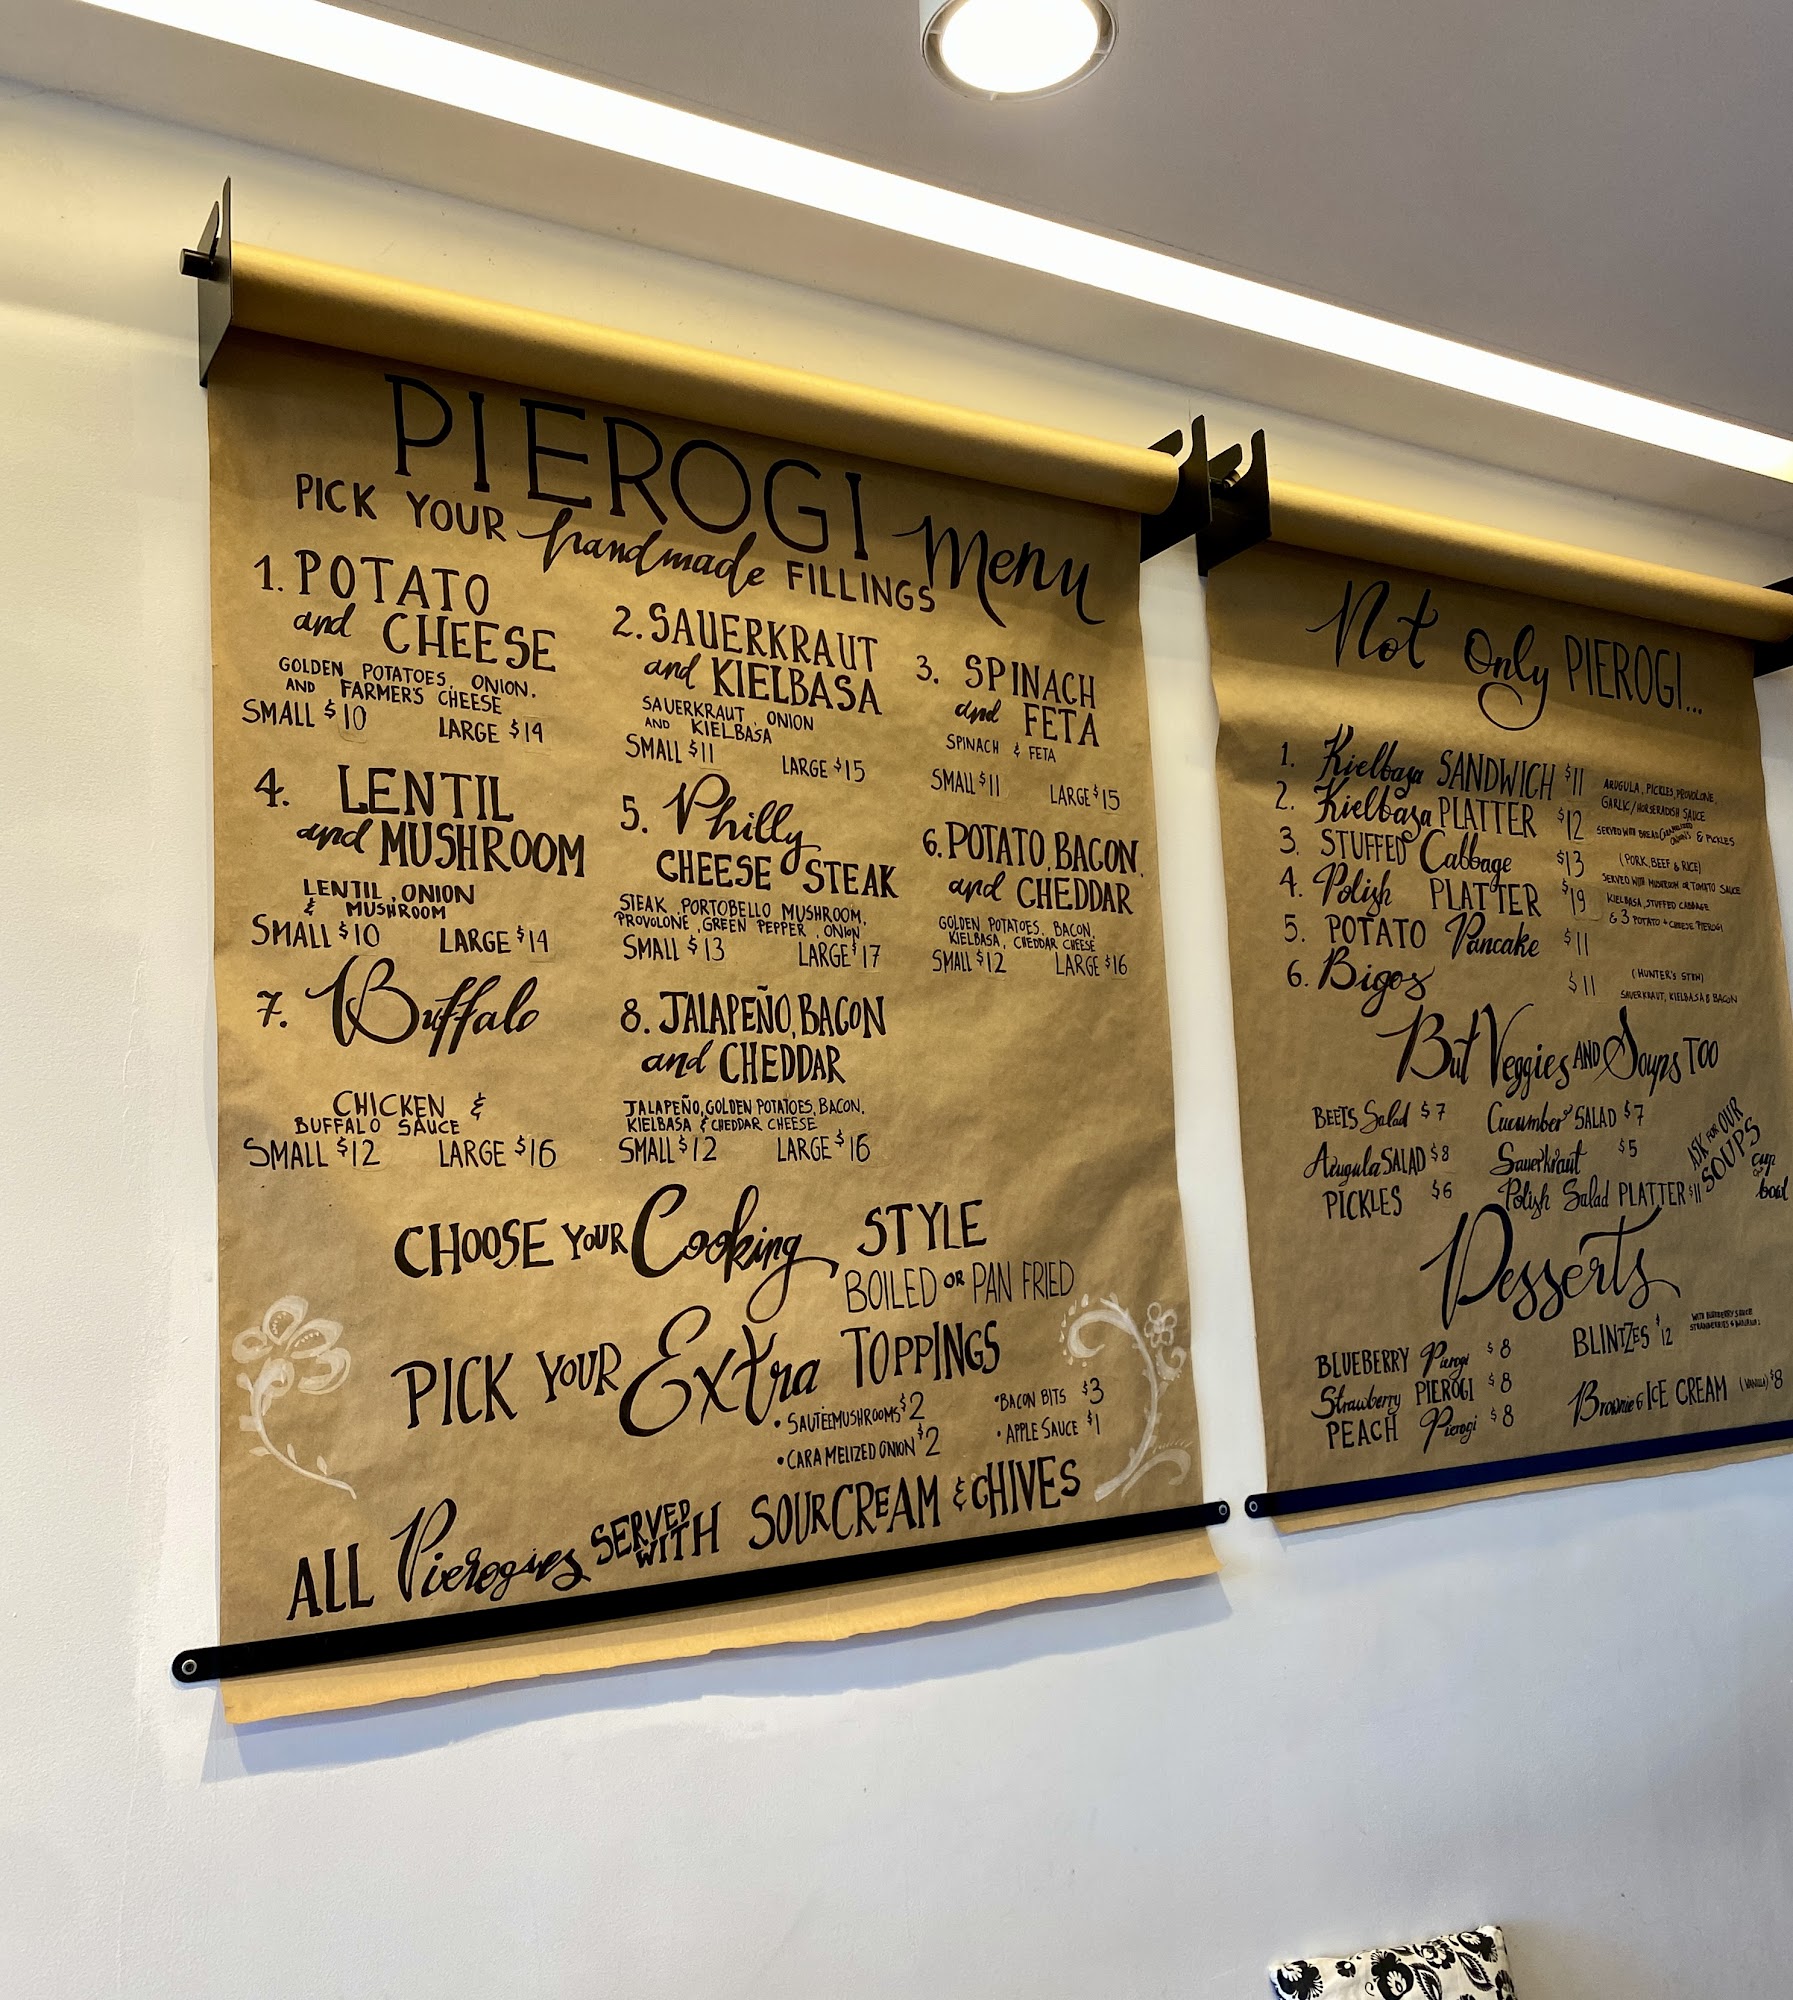 PIEROGI Menu
PICK YOUR handmade FILLINGS
1. POTATO
and CHEESE
GOLDEN POTATOES, ONION,
AND FARMER'S CHEESE
SMALL $10 LARGE $14
2. SAUERKRAUT
and KIELBASA
SAUERKRAUT, ONION
AND KIELBASA
SMALL $11 LARGE $15
3. SPINACH
and FETA
SPINACH & FETA
SMALL $11 LARGE $15
4. LENTIL
and MUSHROOM
LENTIL, ONION
& MUSHROOM
SMALL $10 LARGE $14
5. Philly
CHEESE STEAK
STEAK, PORTOBELLO MUSHROOM,
PROVOLONE, GREEN PEPPER, ONION
SMALL $13 LARGE $17
6. POTATO, BACON,
and CHEDDAR
GOLDEN POTATOES, BACON,
KIELBASA, CHEDDAR CHEESE
SMALL $12 LARGE $16
7. Buffalo
CHICKEN &
BUFFALO SAUCE
SMALL $12 LARGE $16
8. JALAPEÑO, BACON
and CHEDDAR
JALAPEÑO, GOLDEN POTATOES, BACON,
KIELBASA & CHEDDAR CHEESE
SMALL $12 LARGE $16
CHOOSE YOUR Cooking STYLE
BOILED OR PAN FRIED
PICK YOUR Extra TOPPINGS
• SAUTÉEMUSHROOMS $2
• BACON BITS $3
• CARAMELIZED ONION $2
• APPLE SAUCE $1
ALL Pierogies SERVED WITH SOUR CREAM & CHIVES
Not Only PIEROGI...
1. Kielbasa SANDWICH $11
ARUGULA, PICKLES, PROVOLONE,
GARLIC/HORSERADISH SAUCE
2. Kielbasa PLATTER $12
SERVED WITH BREAD, CARAMELIZED ONIONS & PICKLES
3. STUFFED Cabbage $13
(PORK, BEEF & RICE)
SERVED WITH MUSHROOM OR TOMATO SAUCE
4. Polish PLATTER $19
KIELBASA, STUFFED CABBAGE
& 3 POTATO + CHEESE PIEROGI
5. POTATO Pancake $11
6. Bigos $11
(HUNTER'S STEW)
SAUERKRAUT, KIELBASA & BACON
But Veggies AND Soups TOO
BEETS Salad $7
Cucumber SALAD $7
Arugula SALAD $8
Sauerkraut $5
PICKLES $6
Polish Salad PLATTER $11
ASK FOR OUR
SOUPS
cup
or
bowl
Desserts
BLUEBERRY Pierogi $8
Strawberry PIEROGI $8
PEACH Pierogi $8
BLINTZES $12
WITH BLUEBERRY SAUCE
STRAWBERRIES &
Brownie & ICE CREAM (VANILLA) $8